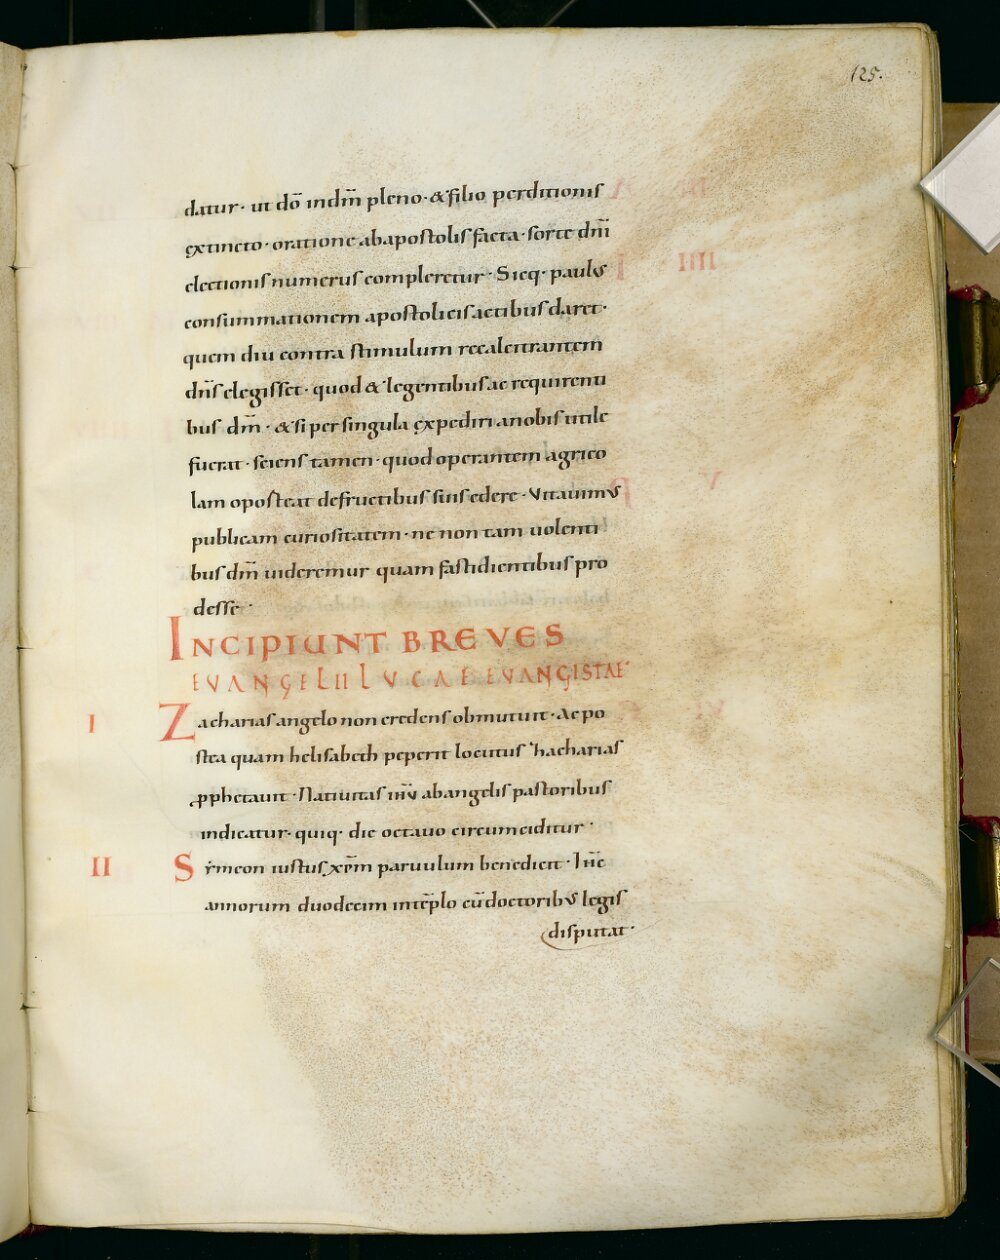 125.
datur· ut dō indm̄ pleno· &filio perditionis
extincto· oratione abapostolis facta· sorte dn̄i
electionis numerus compleretur· Sicq· paulus
consummationem apostolicis actibus daret·
quem diu contra stimulum recalcitrantem
dn̄s elegisset· quod & legentibus ac requirenti
bus dm̄· & si per singula expediri anobis utile
fuerat· sciens tamen· quod operantem agrico
lam oposteat defructibus suis edere· Vitauimus
publicam curiositatem· ne non tam uolenti
bus dm̄ uideremur quam fastidientibus pro
desse·
INCIPIUNT BREVES
EVANGELII LVCAE EVANGISTAE·
I Zacharias angelo non credens obmutuit· Ac po
stea quam helisabeth peperit locutus hacharias
ꝓphetauit· Natiuitas ih̄u abangelis pastoribus
indicatur· quiq· die octauo circumciditur·
II Symeon iustus xp̄m paruulum benedicit· Ih̄c
annorum duodecim intēplo cū doctoribus legis
disputat·